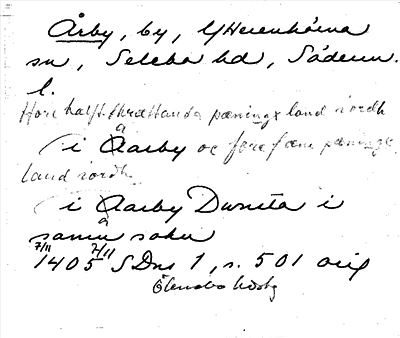 Årby, by, Y Herenhärna
sn, Selebo hd, Söderm.
l.
Hore halft thrættanda pæningx land iordh
i Aarby oc fore fæm pæningx
land iordh
i Aarby Dunsta i
samu sokn
7/11 1405 7/11 SDns 1, s. 501 orig
Ölensbo hdsbg